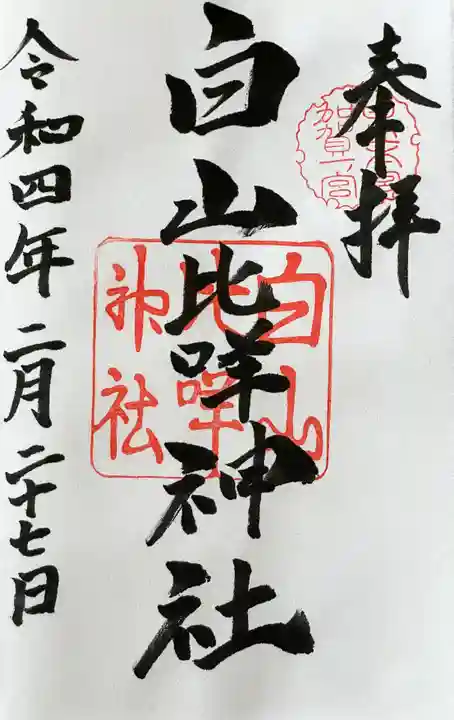 奉拝
白山比咩神社
令和四年二月二十七日
白山
比咩
神社
加賀一宮